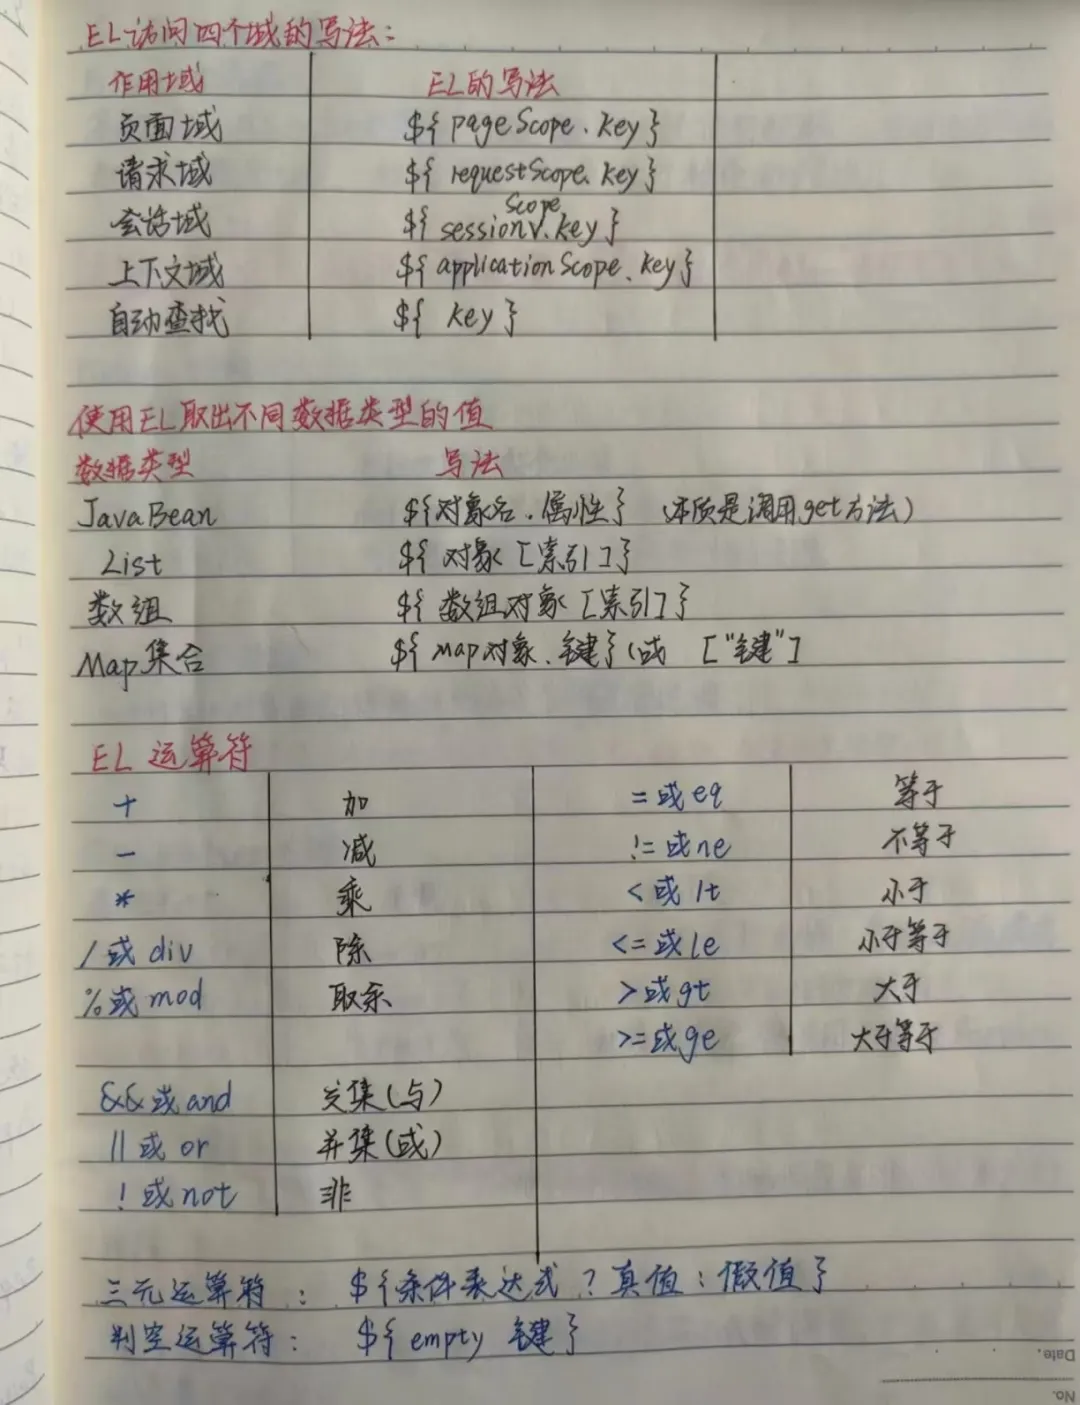 EL访问四个域的写法：
作用域 EL的写法
页面域 ${ pageScope.key}
请求域 ${ requestScope.key}
会话域 ${ sessionScope.key}
上下文域 ${ applicationScope.key}
自动查找 ${ key}
使用EL取出不同数据类型的值
数据类型 写法
JavaBean ${对象名.属性} （本质是调用get方法）
List ${ 对象［索引］}
数组 ${ 数组对象［索引］}
Map集合 ${ map对象.键}（或 ［"键"］
EL 运算符
+ 加 =或eq 等于
- 减 !=或ne 不等于
* 乘 <或lt 小于
/或div 除 <=或le 小于等于
%或mod 取余 >或gt 大于
>=或ge 大于等于
&&或and 交集(与)
||或or 并集(或)
!或not 非
三元运算符： ${条件表达式？真值：假值}
判空运算符： ${empty 键}
Date.
No.